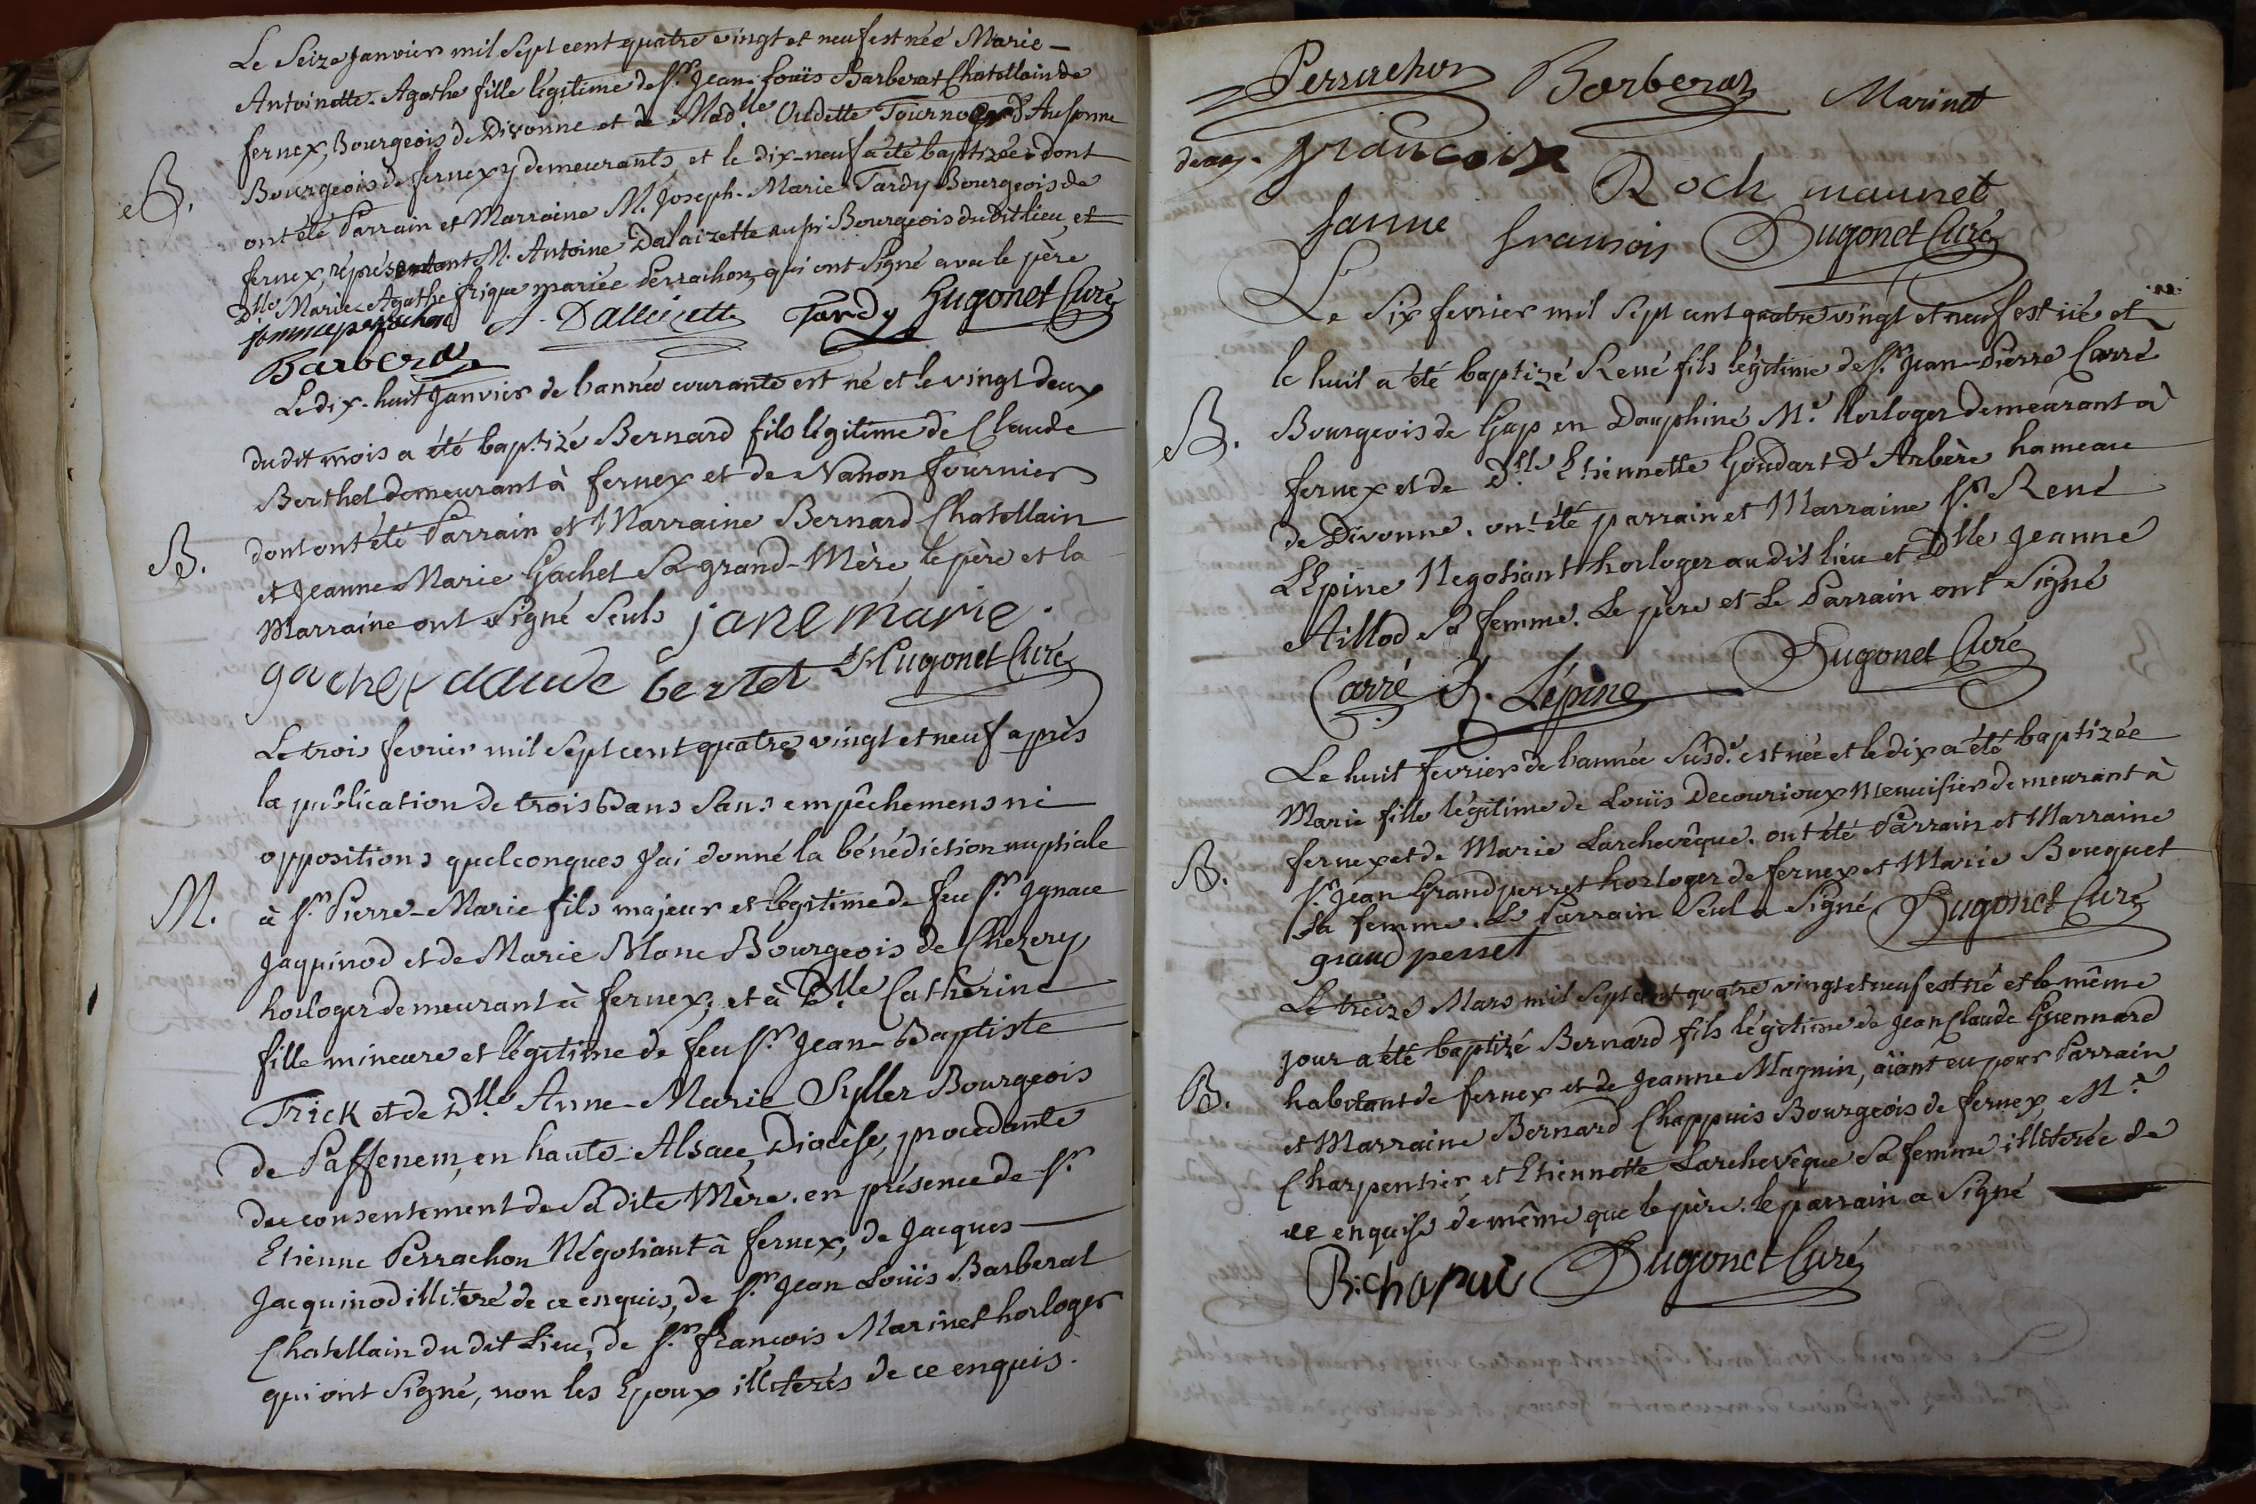 Le Seize Janvier mil Sept cent quatre vingt et neuf est née Marie-
Antoinette-Agathe fille légitime de Sr. Jean-Louis Barberat Chatellain de
fernex, Bourgeois de Divonne et de Madlle. Oudette Tourno d'Ausonne
Bourgeois de fernex y demeurants et le dix-neuf a été baptizée dont
B.
ont été Parrain et Marraine M. Joseph-Marie Tardy Bourgeois de
fernex, représentant M. Antoine Dalaizette aussi Bourgeois du dit lieu, et
Dlle. Marie-Agathe frique mariée Perrachon, qui ont Signé avec le père
femme perrachon A. Dalleizette Tardy Hugonet Curé
Barberat
Le dix-huit Janvier de l'année courante est né et le vingt deux
du dit mois a été baptizé Bernard fils légitime de Claude
Berthet demeurant à fernex et de Nanon fournier
B.
dont ont été Parrain et Marraine Bernard Chatellain
et Jeanne-Marie Gachet Sa grand-Mère, le père et la
Marraine ont Signé Seuls jane marie
gachet claude bertet Hugonet Curé
Le trois fevrier mil Sept cent quatre vingt et neuf après
la publication de trois Bans Sans empêchemens ni
oppositions quelconques J'ai donné la bénédiction nuptiale
M.
à Sr. Pierre-Marie fils majeur et légitime de feu Sr. Ignace
Jaquinod et de Marie Blanc Bourgeois de Chezery
horloger demeurant à fernex; et à Dlle. Catherine
fille mineure et légitime de feu Sr. Jean-Baptiste
Trick et de Dlle. Anne-Marie Syller Bourgeois
de Paffenem, en haute-Alsace, Diocèse, procedante
du consentement de Sa dite Mère. en présence de Sr.
Etienne Perrachon Négotiant à fernex, de Jacques
Jacquinod illiteré de ce enquis, de Sr. Jean Louis Barberat
Chatellain du dit Lieu, de Sr. françois Marinet horloger
qui ont Signé, non les Epoux illiterés de ce enquis.
Perrachon Barberat Marinet
francoix
Roch maunet
fanne fransois Hugonet Curé
Le Six fevrier mil Sept cent quatre vingt et neuf est né et
le huit a été baptizé René fils légitime de Sr. Jean-Pierre Carré
B.
Bourgeois de Gap en Dauphiné Me. horloger demeurant à
fernex et de Dlle. Etiennette Goudart d'Arbère hameau
de Divonne. ont été parrain et Marraine Sr. René
L'Epine Negotiant horloger au dit lieu et Dlle Jeanne
Aillod Sa femme. Le père et Le Parrain ont Signé
Carré R. Lépine Hugonet Curé
Le huit fevrier de l'année Susde. est née et le dix a été baptizée
Marie fille légitime de Louis Decourioux Menuisier demeurant à
B.
fernex et de Marie Larchevêque. ont été Parrain et Marraine
Sr. Jean Grandperret horloger de fernex et Marie Bouquet
Sa femme. Le Parrain Seul a Signé Hugonet Curé
grand perret
Le treize Mars mil Sept cent quatre vingt et neuf est né et le même
jour a été baptizé Bernard fils légitime de Jean Claude Guennard
B.
habitant de fernex et de Jeanne Magnin, aiant eu pour Parrain
et Marraine Bernard Chappuis Bourgeois de fernex, Me.
Charpentier et Etiennette Larchevêque Sa femme illiterée de
ce enquise de même que le père. le parrain a Signé
B: chapui Hugonet Curé